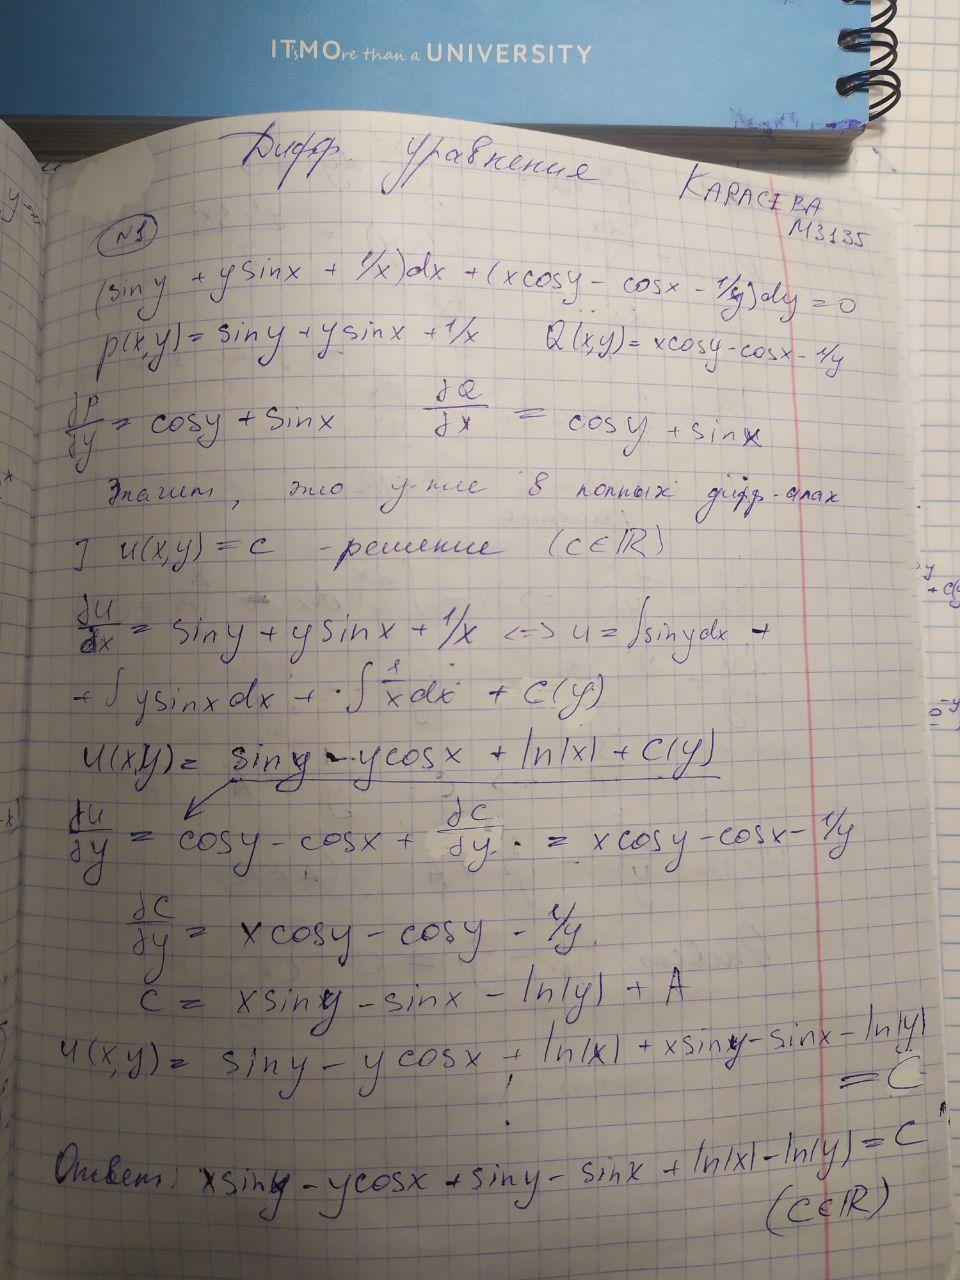 ITsMOre than a UNIVERSITY
Дифф. уравнения
КАРАСЕВА
M3135
N1
(siny + ysinx + 1/x)dx + (xcosy - cosx - 1/y)dy = 0
p(x,y) = siny + ysinx + 1/x Q(x,y) = xcosy - cosx - 1/y
∂P/∂y = cosy + sinx ∂Q/∂x = cosy + sinx
Значит, это у-ние в полных дифф-алах
] u(x,y) = c - решение (c∈ℝ)
∂u/∂x = siny + ysinx + 1/x <=> u = ∫sinydx +
+ ∫ysinxdx + ∫1/x dx + C(y)
u(x,y) = siny - ycosx + ln|x| + C(y)
∂u/∂y = cosy - cosx + ∂C/∂y = xcosy - cosx - 1/y
∂C/∂y = xcosy - cosy - 1/y
C = xsiny - sinx - ln|y| + A
u(x,y) = siny - ycosx + ln|x| + xsiny - sinx - ln|y|
= C
Ответ: xsiny - ycosx + siny - sinx + ln|x| - ln|y| = C
(C∈ℝ)